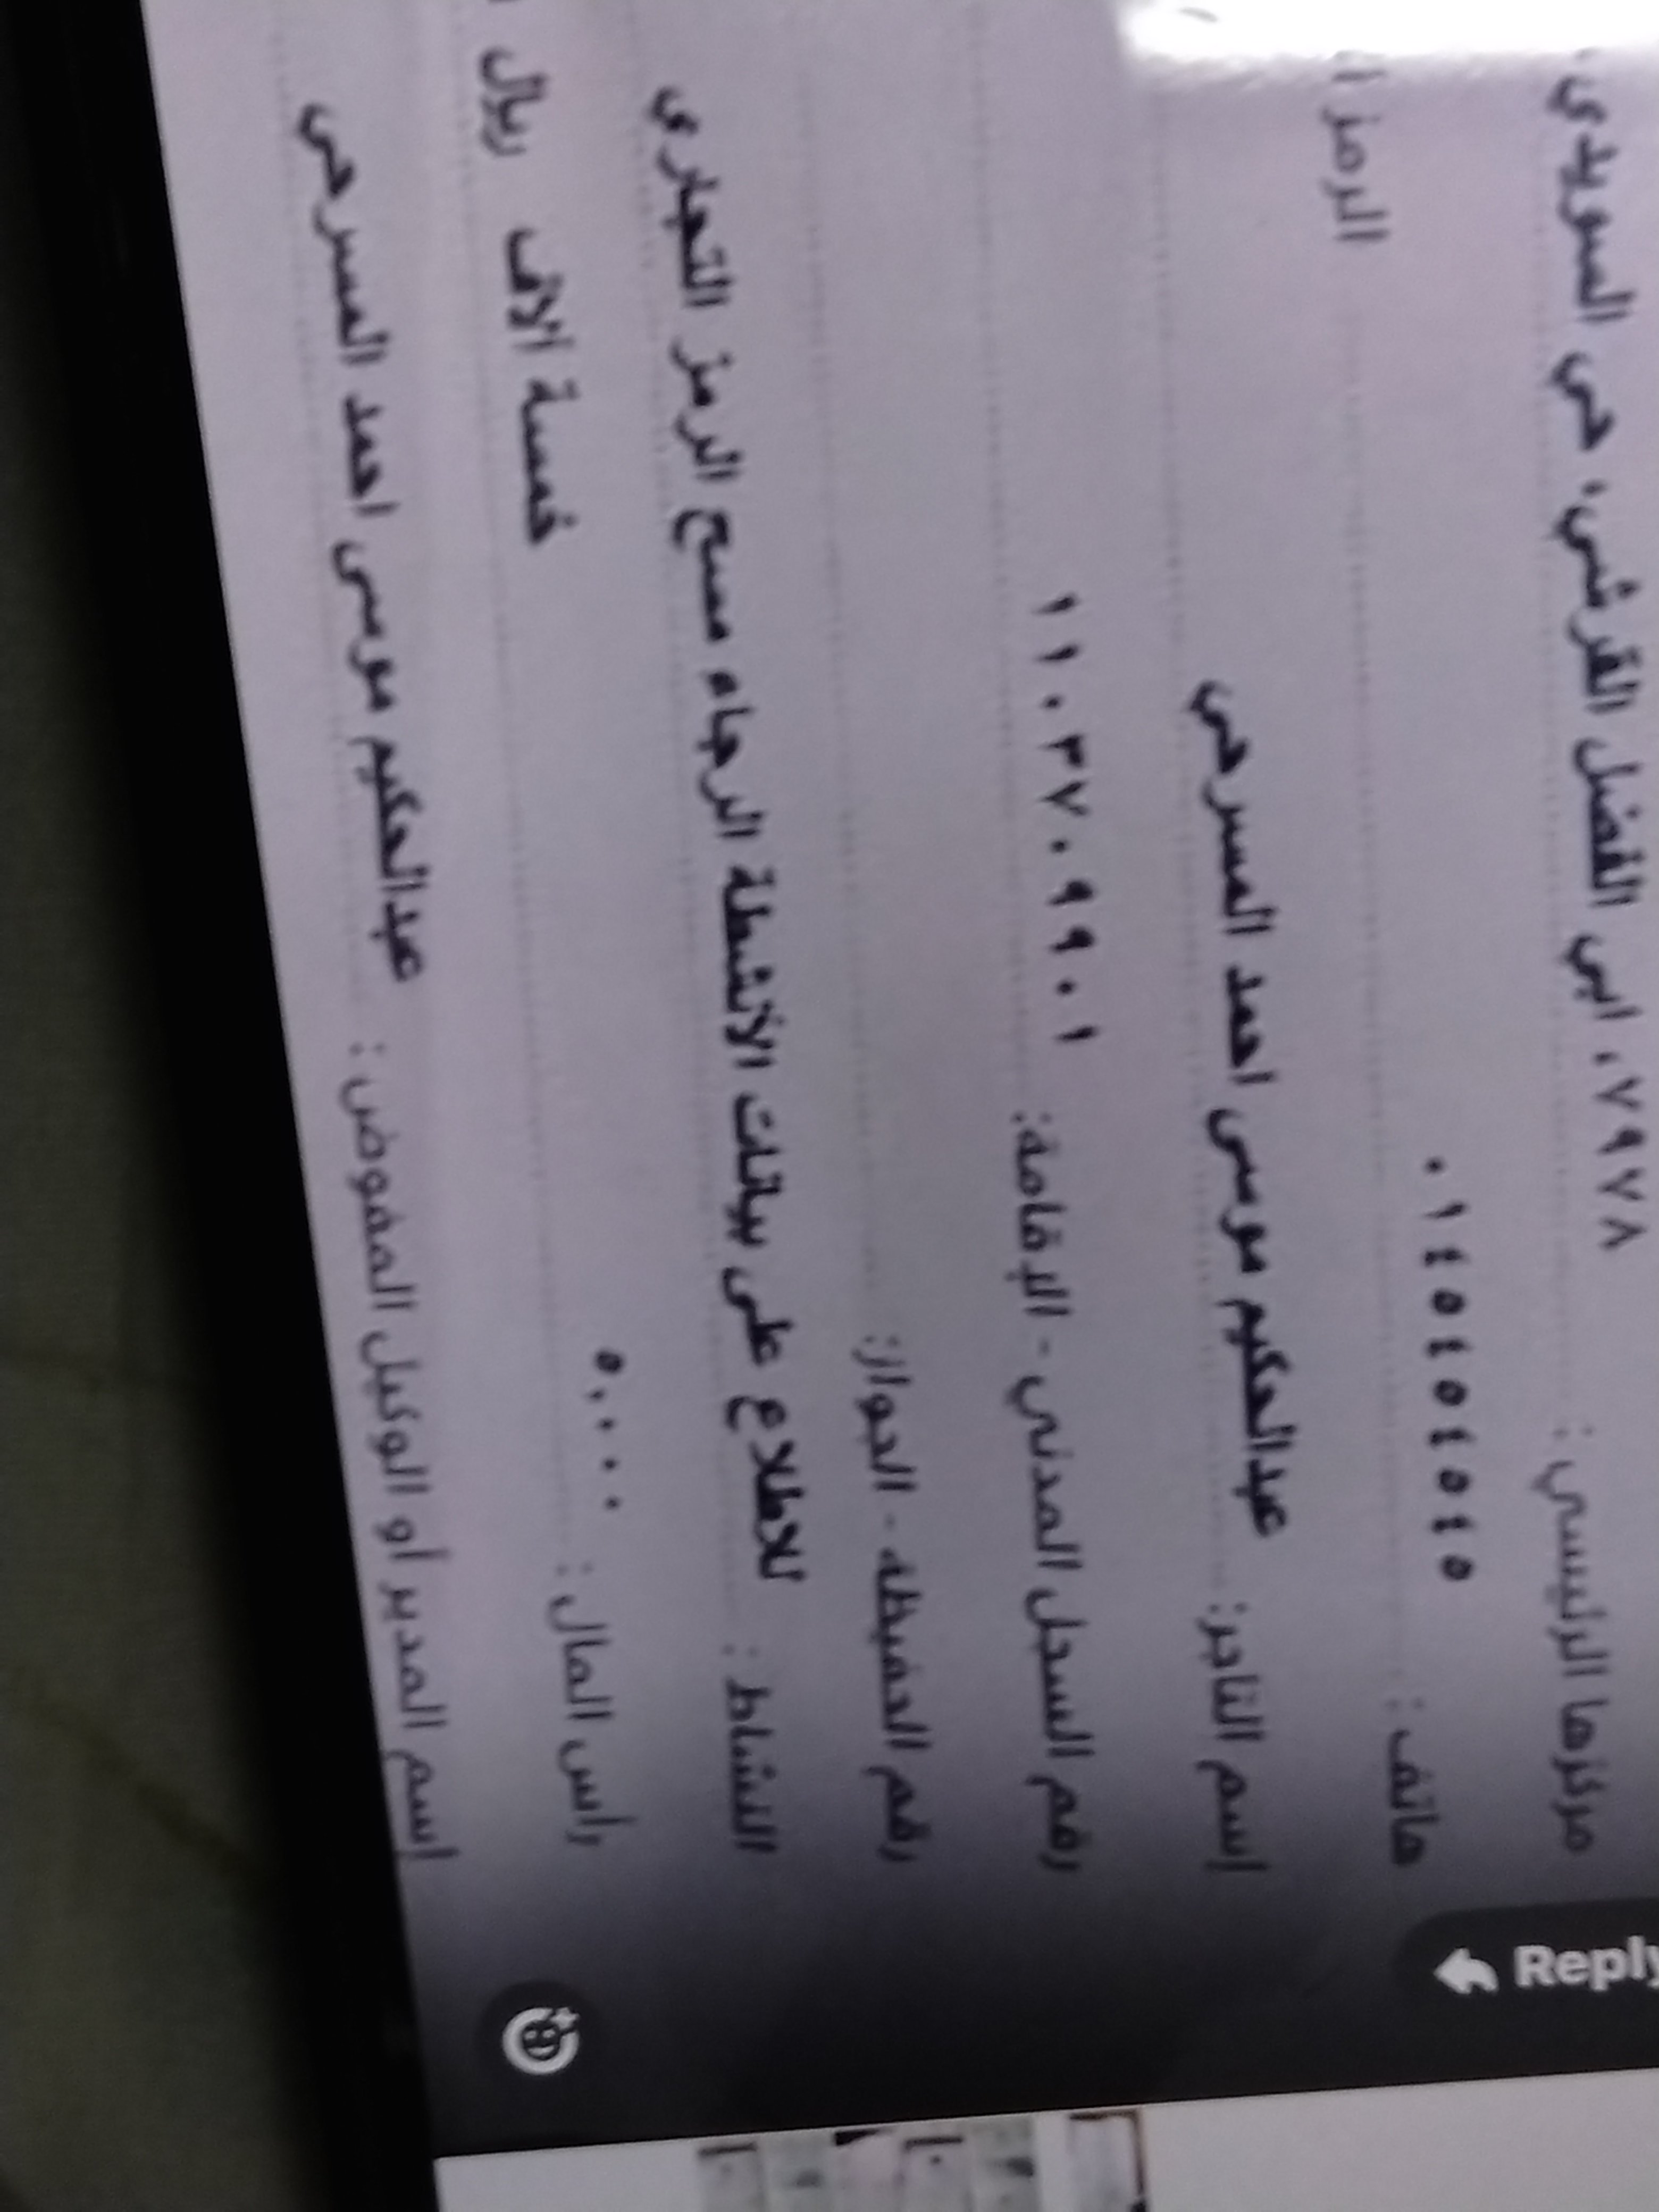 مركزها الرئيسي : ٧٩٧٨، ابي الفضل القرشي، حي السويدي
هاتف : ٠١٤٥٤٥٤٥٤٥ الرمز
إسم التاجر: عبدالحكيم موسى احمد المسرحي
رقم السجل المدني - الإقامة: ١١٠٣٧٠٩٩٠١
رقم الحفيظه - الجواز:
النشاط : للاطلاع على بيانات الأنشطة الرجاء مسح الرمز التجاري
رأس المال : ٥,٠٠٠ خمسة آلاف ريال
إسم المدير أو الوكيل المفوض : عبدالحكيم موسى احمد المسرحي
Reply